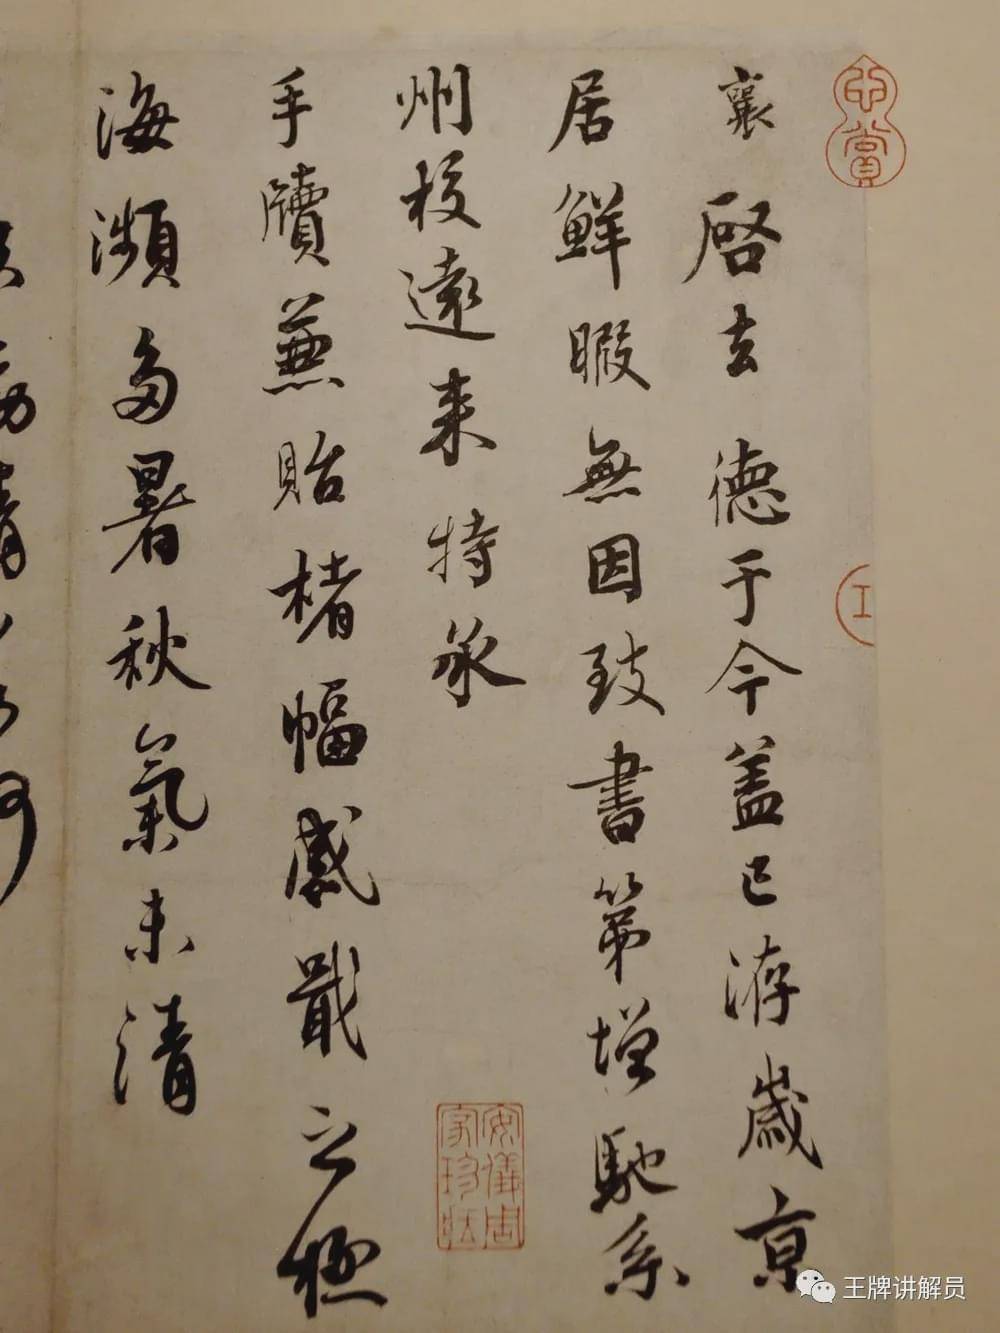 襄啓去德于今盖已洊歲京
居鮮暇無因致書第增馳系
州校遠来特承
手牘兼貽楮幅感戢之極
海瀕多暑秋氣未清
心賞
安儀周家珍藏
王牌讲解员